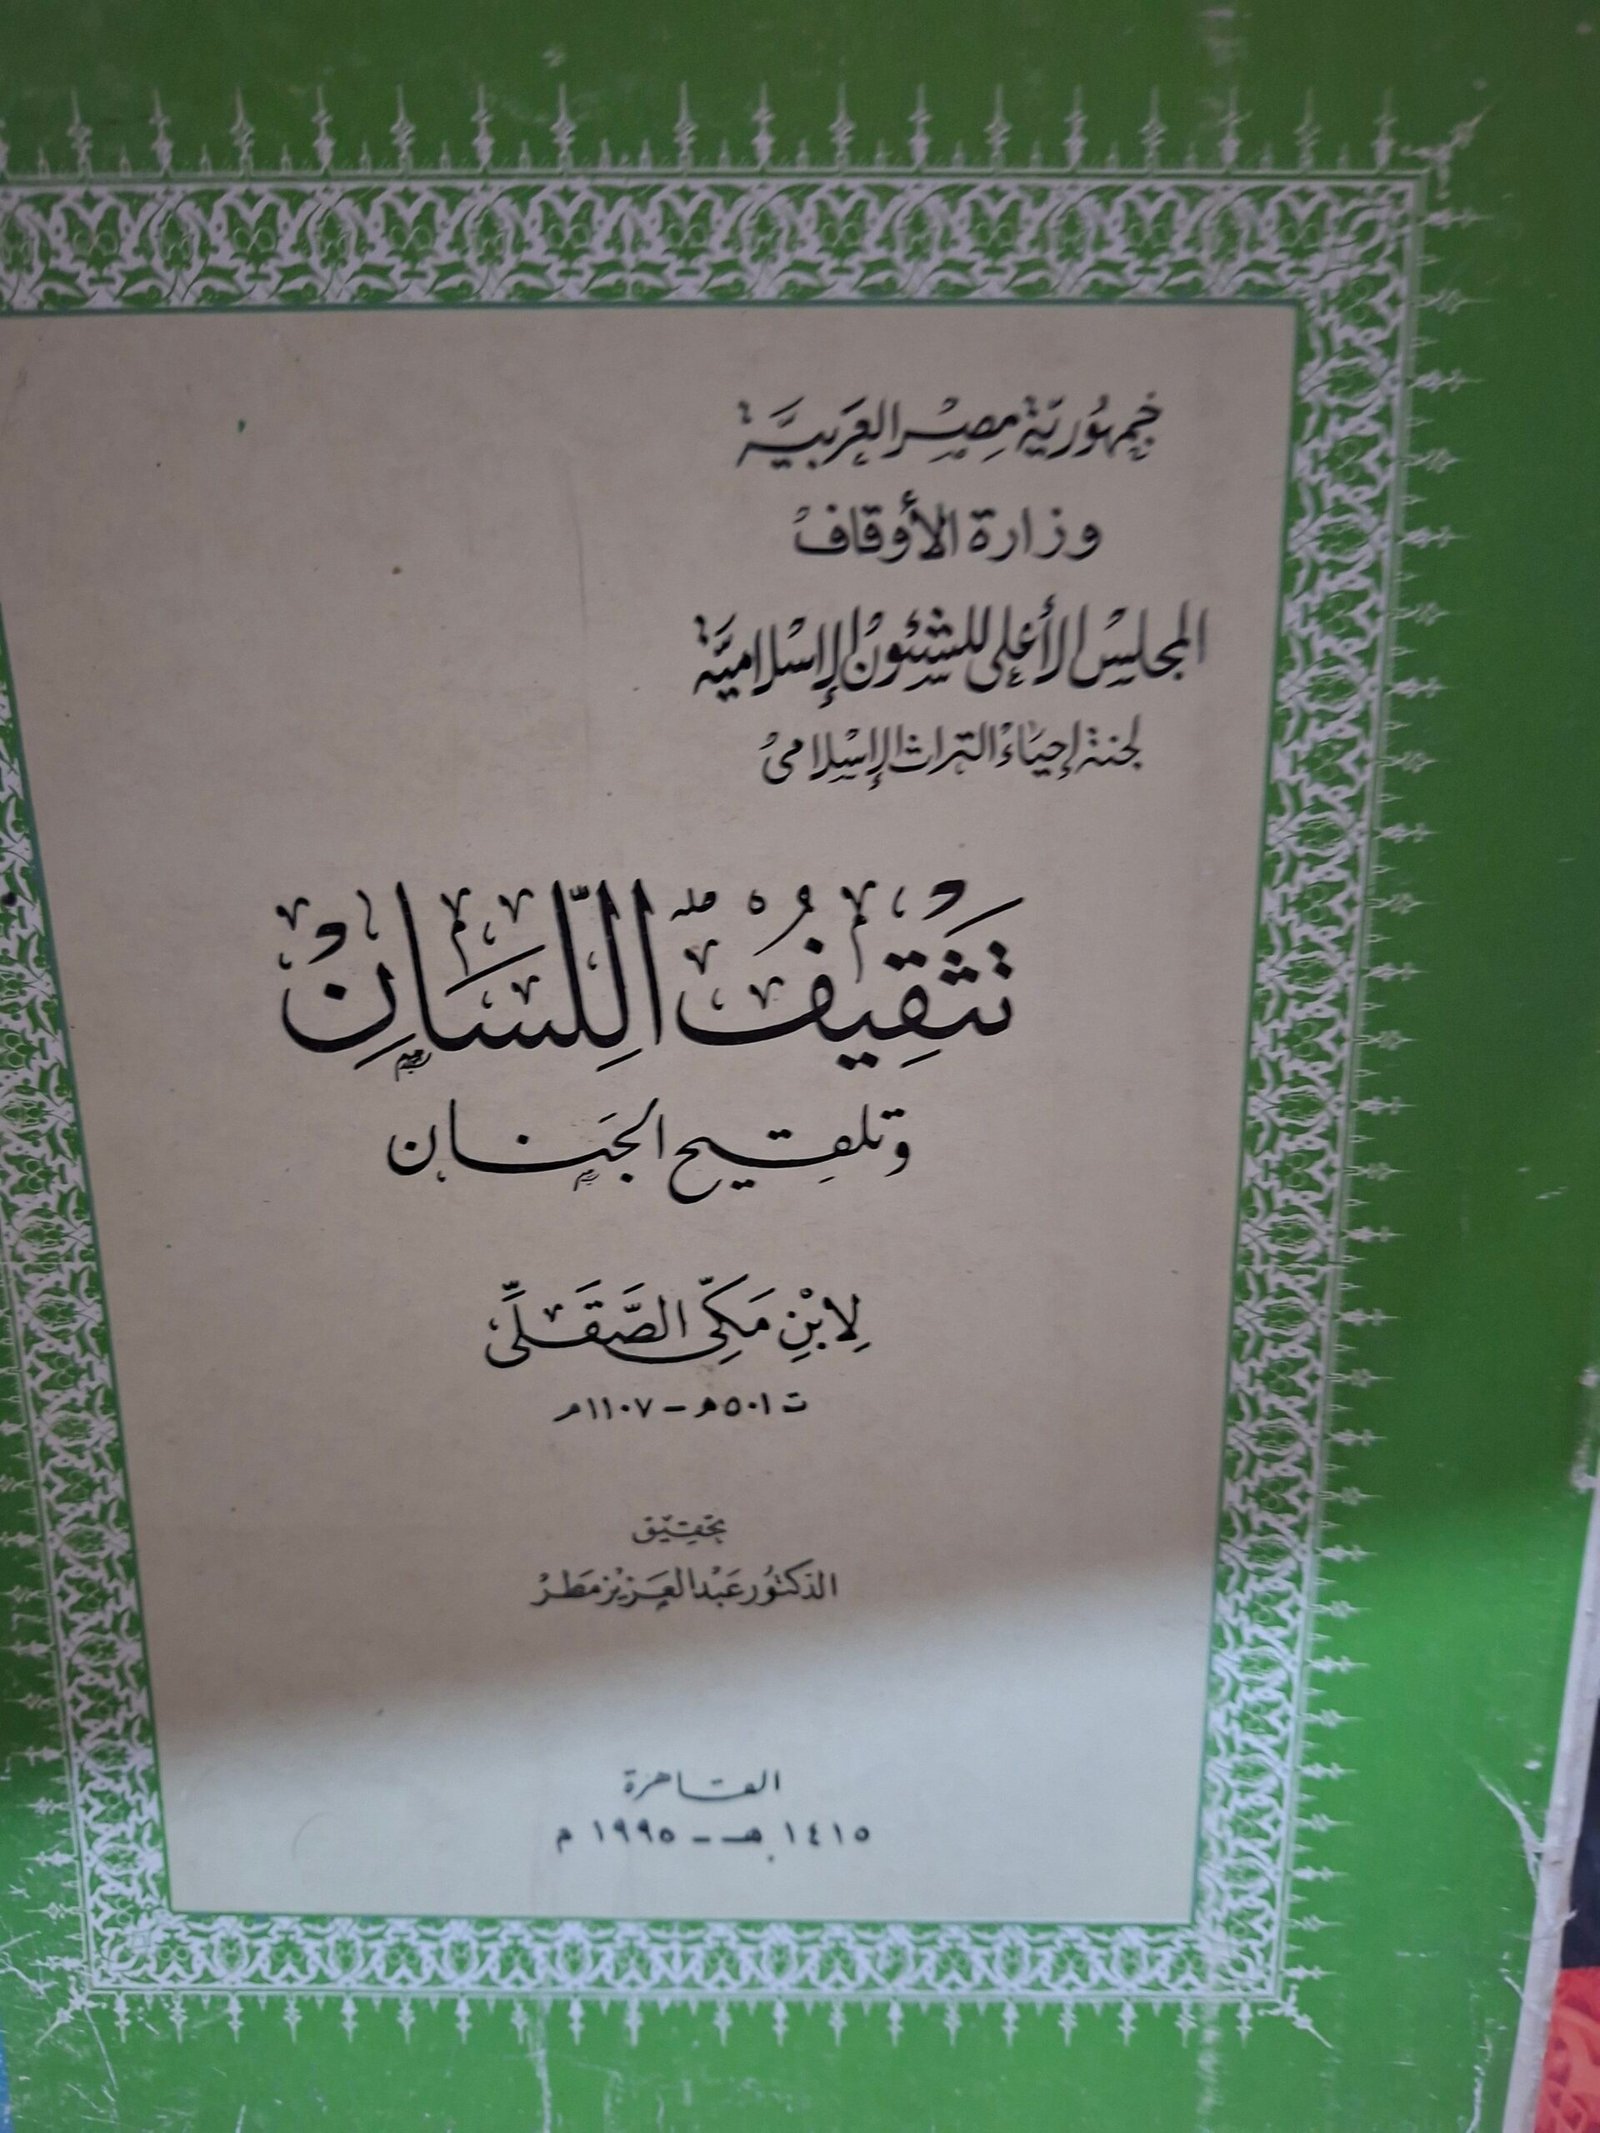 جمهُوريّة مِصْر العَربيَّة
وزارة الأوقافْ
المجلسْ الأعلى للشئونْ الإسْلاميَّة
لجنة إحيَاءْ التراث الإسْلامىْ
تَثقِيفُ اللِّسَانِ
وتلقِيح الجَنان
لِابْنِ مَكِّى الصَّقَلِّى
ت ٥٠١هـ – ١١٠٧م
تحقِيْق
الدكتوُر عَبْد العَزيْز مَطرْ
القاهرة
١٤١٥ هـ – ١٩٩٥ م